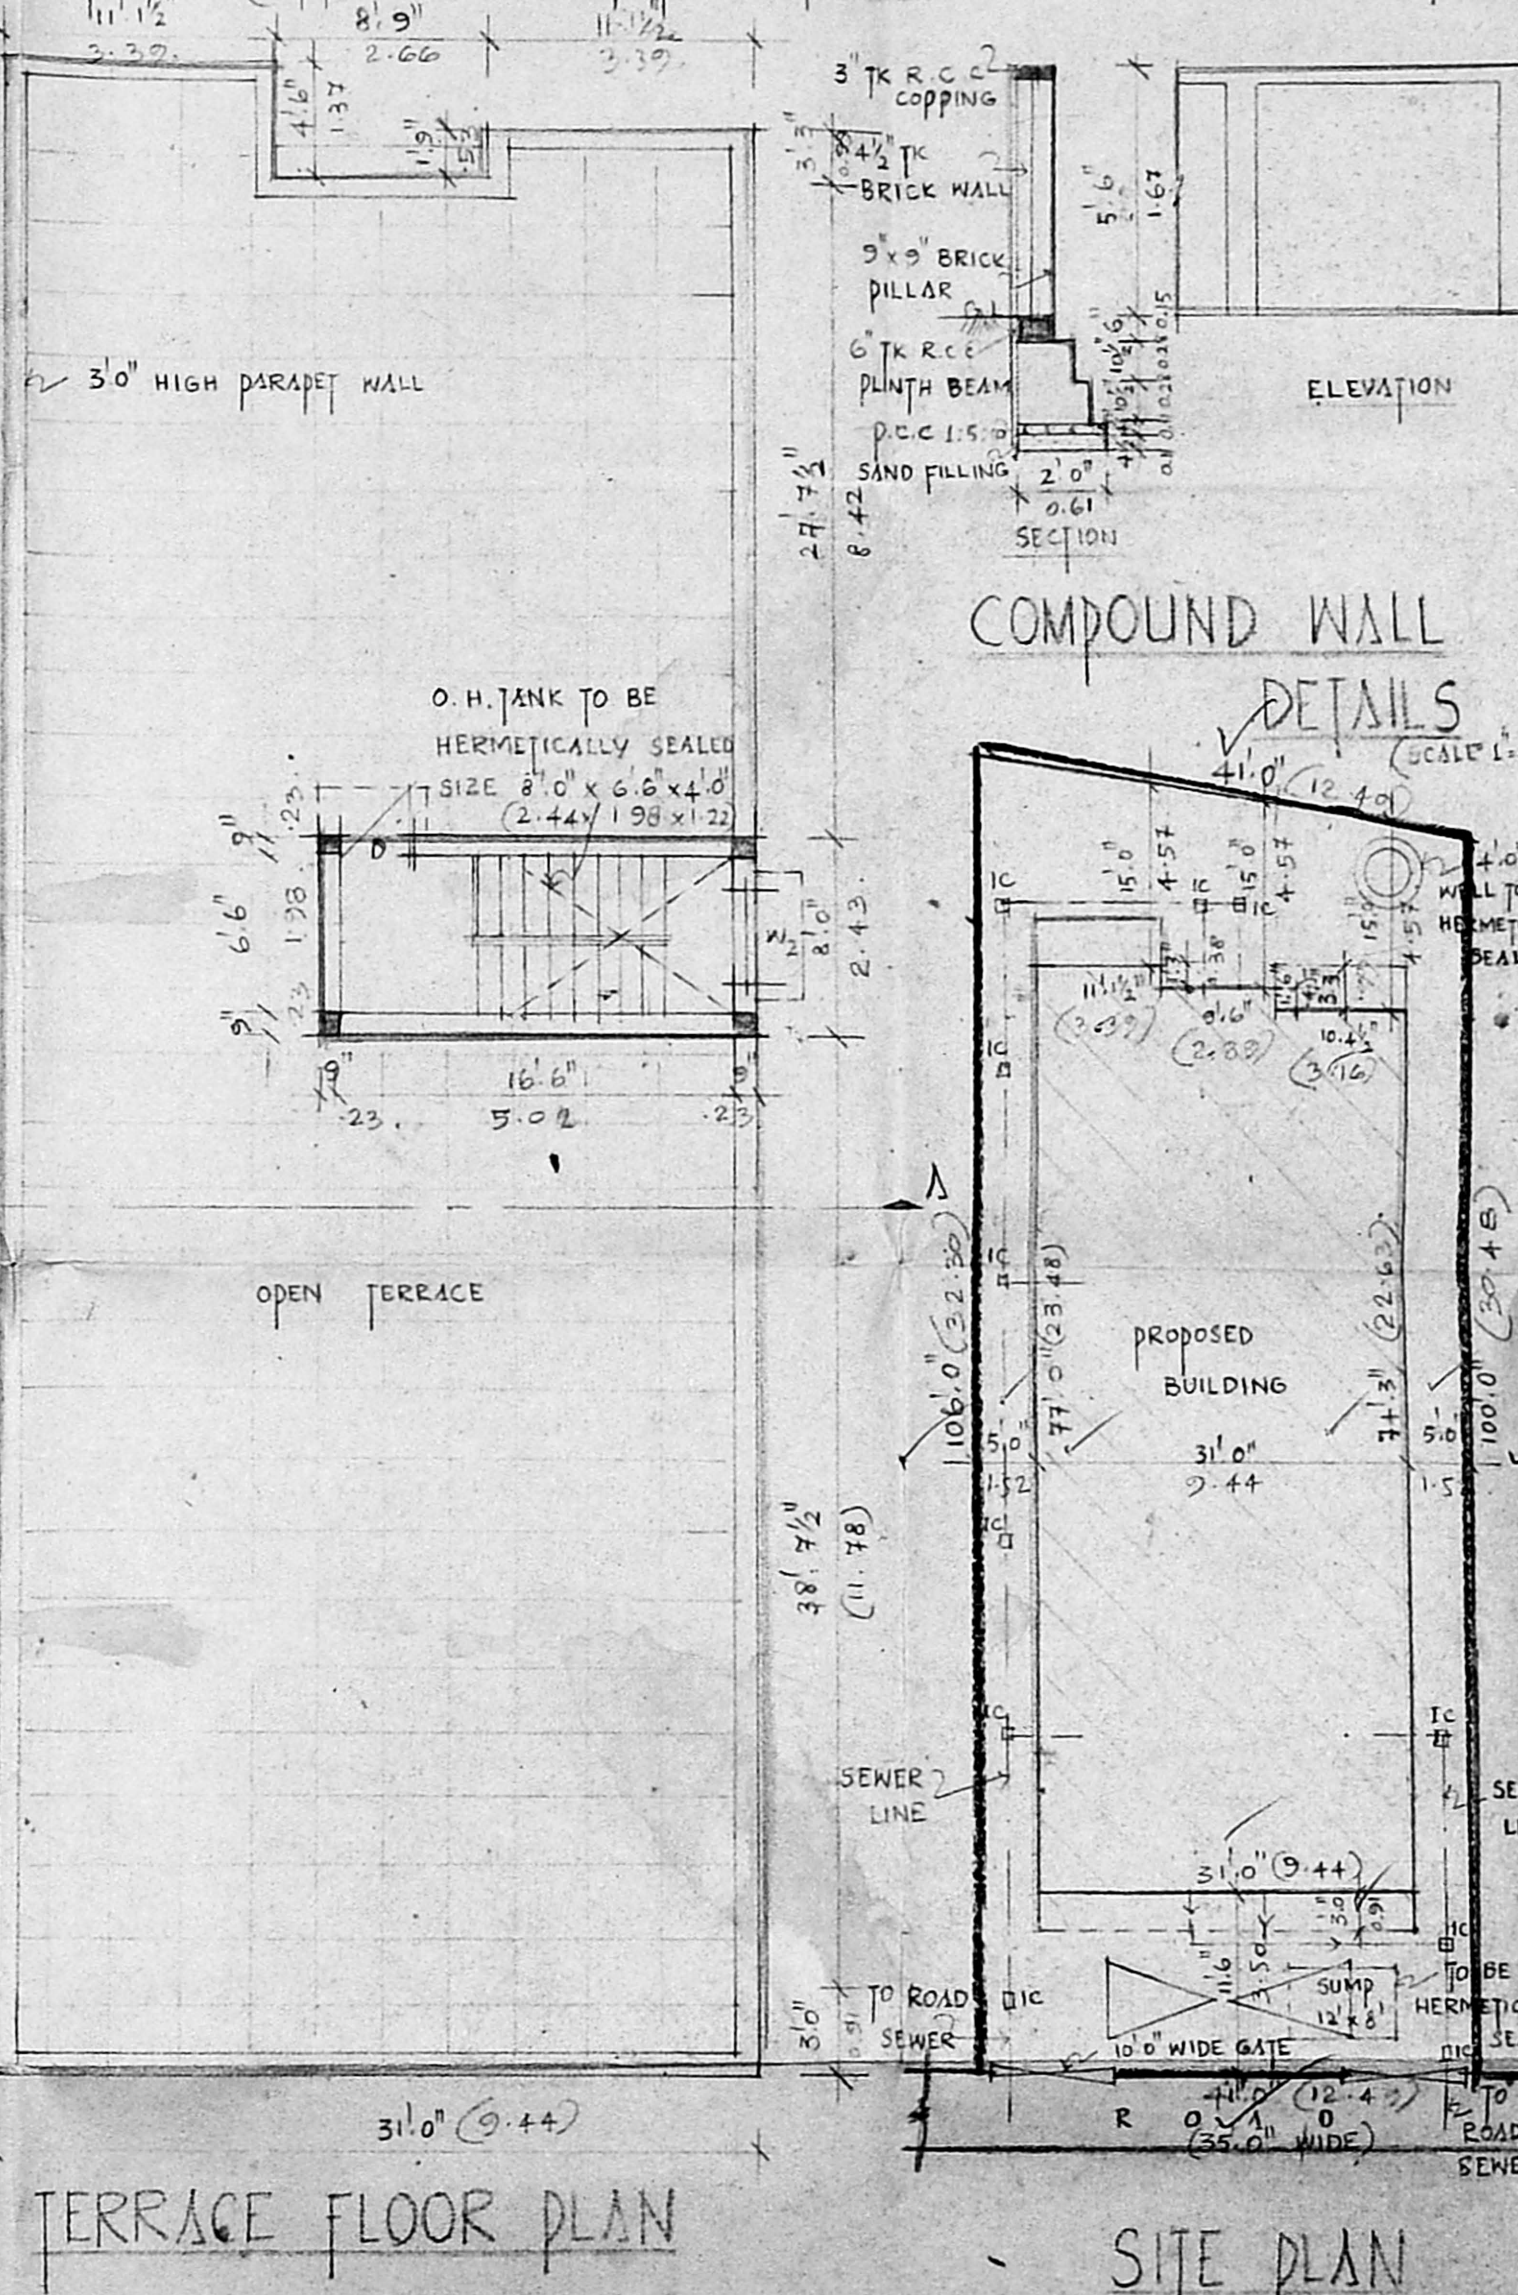 11'.1½"
8'.9"
11'.1½"
3.39.
2.66
3.39.
4'.6"
1.37
1'.9"
.53
3'.3"
3'.0" HIGH PARAPET WALL
27'.7½"
8.42
O.H. TANK TO BE
HERMETICALLY SEALED
SIZE 8'.0" x 6'.6" x 4'.0"
(2.44 x 1.98 x 1.22)
D
9"
.23.
6'.6"
1.98.
9"
.23
W2
8'.0"
2.43.
9"
16'.6"
9"
.23.
5.02
.23
A
OPEN TERRACE
38'.7½"
(11.78)
3'.0"
0.91
31'.0" (9.44)
TERRACE FLOOR PLAN
3" TK R.C.C
COPPING
4½" TK
BRICK WALL
9" x 9" BRICK
PILLAR
G.L
6" TK R.C.C
PLINTH BEAM
P.C.C 1:5:
SAND FILLING
5'.6"
1.67
0.15
2'.0"
0.61
SECTION
ELEVATION
COMPOUND WALL
DETAILS
(SCALE 1"=
41'.0" (12.49)
15'.0"
4.57
15'.0"
4.57
15'.0"
4.57
IC
IC
IC
4'.0"
WELL TO
HERMET
SEAL
11'.1½"
(3.39)
9'.6"
(2.89)
10'.4½"
(3.16)
IC
IC
106'.0" (32.30)
77'.0" (23.48)
PROPOSED
BUILDING
74'.3" (22.63)
100'.0" (30.48)
5'.0"
1.52
31'.0"
9.44
5'.0
1.5
IC
IC
IC
SEWER
LINE
SE
L
31'.0" (9.44)
3'.0"
0.91
IC
11'.6"
3.50
SUMP
12' x 8'
TO BE
HERMETIC
SE
TO ROAD
SEWER
IC
10'.0" WIDE GATE
IC
41'.0" (12.49)
R O A D
(35'.0" WIDE)
TO
ROAD
SEWE
SITE PLAN